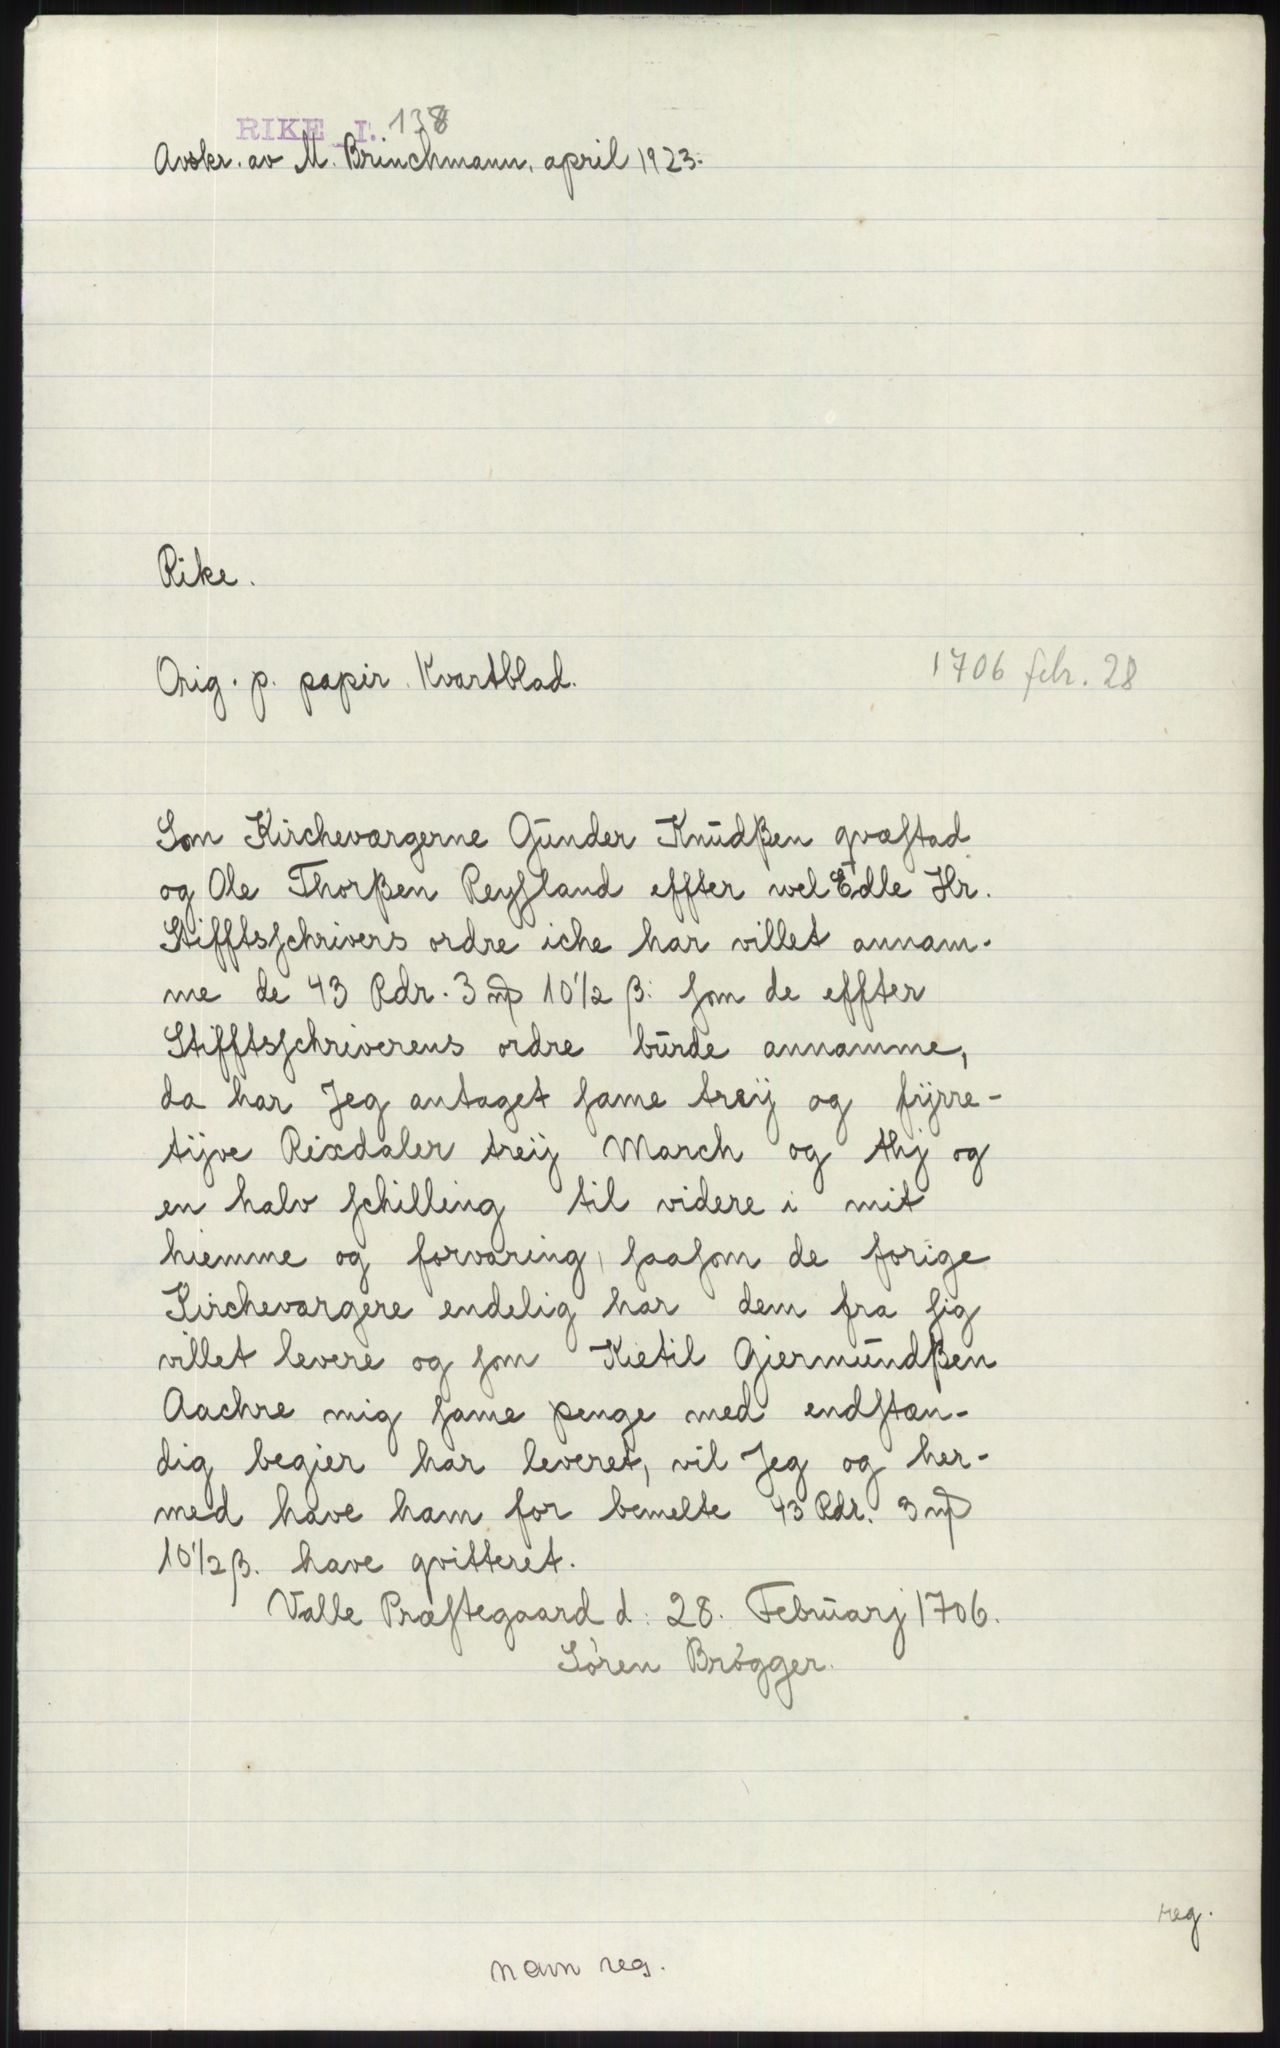 RIKE I. 138
Avskr. av M. Brinchmann, april 1923.
Rike.
Orig. p. papir. Kvartblad.
1706 febr. 28
Som Kircheværgerne Gūnder Knūdßen qvæſtad
og Ole Thorßen Reyſland effter wel Edle Hr.
Stifftsſchrivers ordre iche har villet annam-
me de 43 Rdr. 3 mþ 10 1/2 β: ſom de effter
Stifftsſchriverens ordre būrde annamme,
da har Jeg antaget ſame treÿ og fÿrre-
tÿve Rixdaler treÿ March og thj og
en halv ſchilling til videre i mit
hiemme og forvaring, ſaaſom de forige
Kircheværgere endelig har dem fra ſig
villet levere og ſom Kietil Gjermūndßen
Aachre mig ſame penge med endſtæn-
dig begier har leveret, vil Jeg og her-
med have ham for bemelte 43 Rdr. 3 mþ
10 1/2 β. have qvitteret.
Valle Præſtegaard d: 28. Febrūarj 1706.
Sören Brögger.
reg.
navn reg.